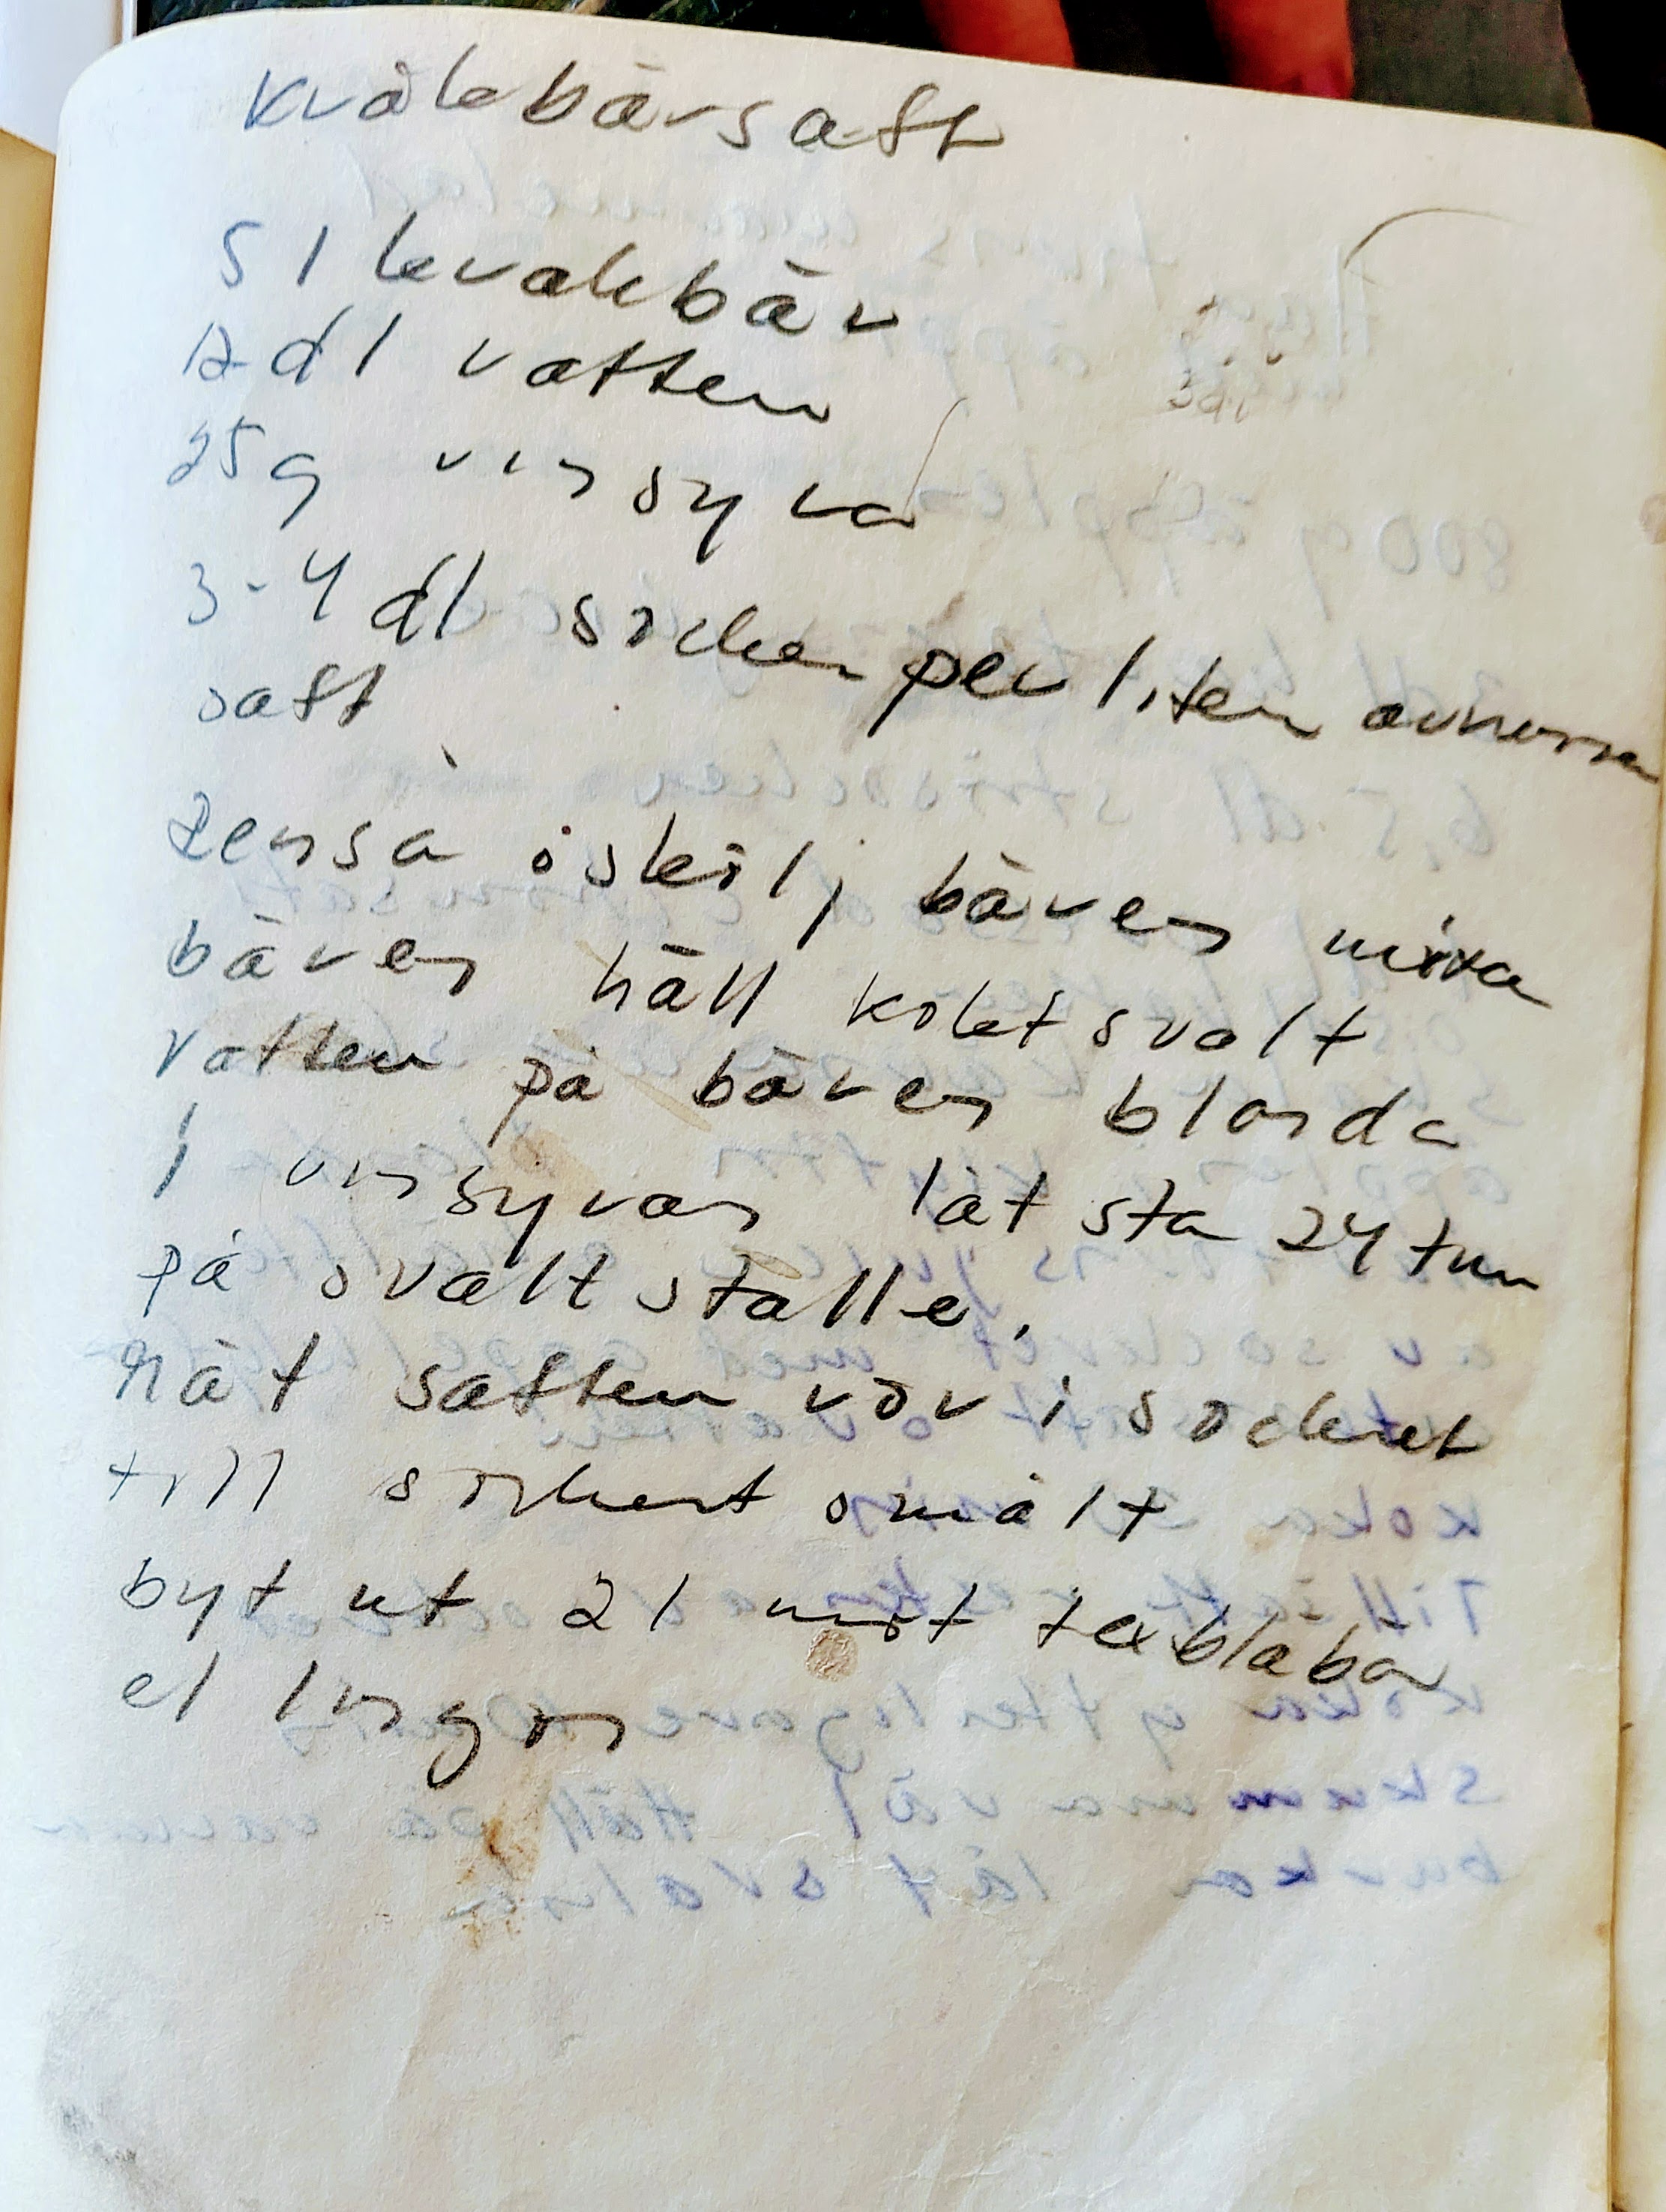 kråkbärsaft
5 l kråkbär
12 dl vatten
25 g vinsyra
3-4 dl socker per liter avrunnen
saft
Rensa o skölj bären mixa
bären häll kokt svalt
vatten på bären blanda
i vinsyran låt stå 24 tim
på svalt ställe.
sät saften rör i sockret
till sockret smält
byt ut 2 l mot tex blåbär
el lingon